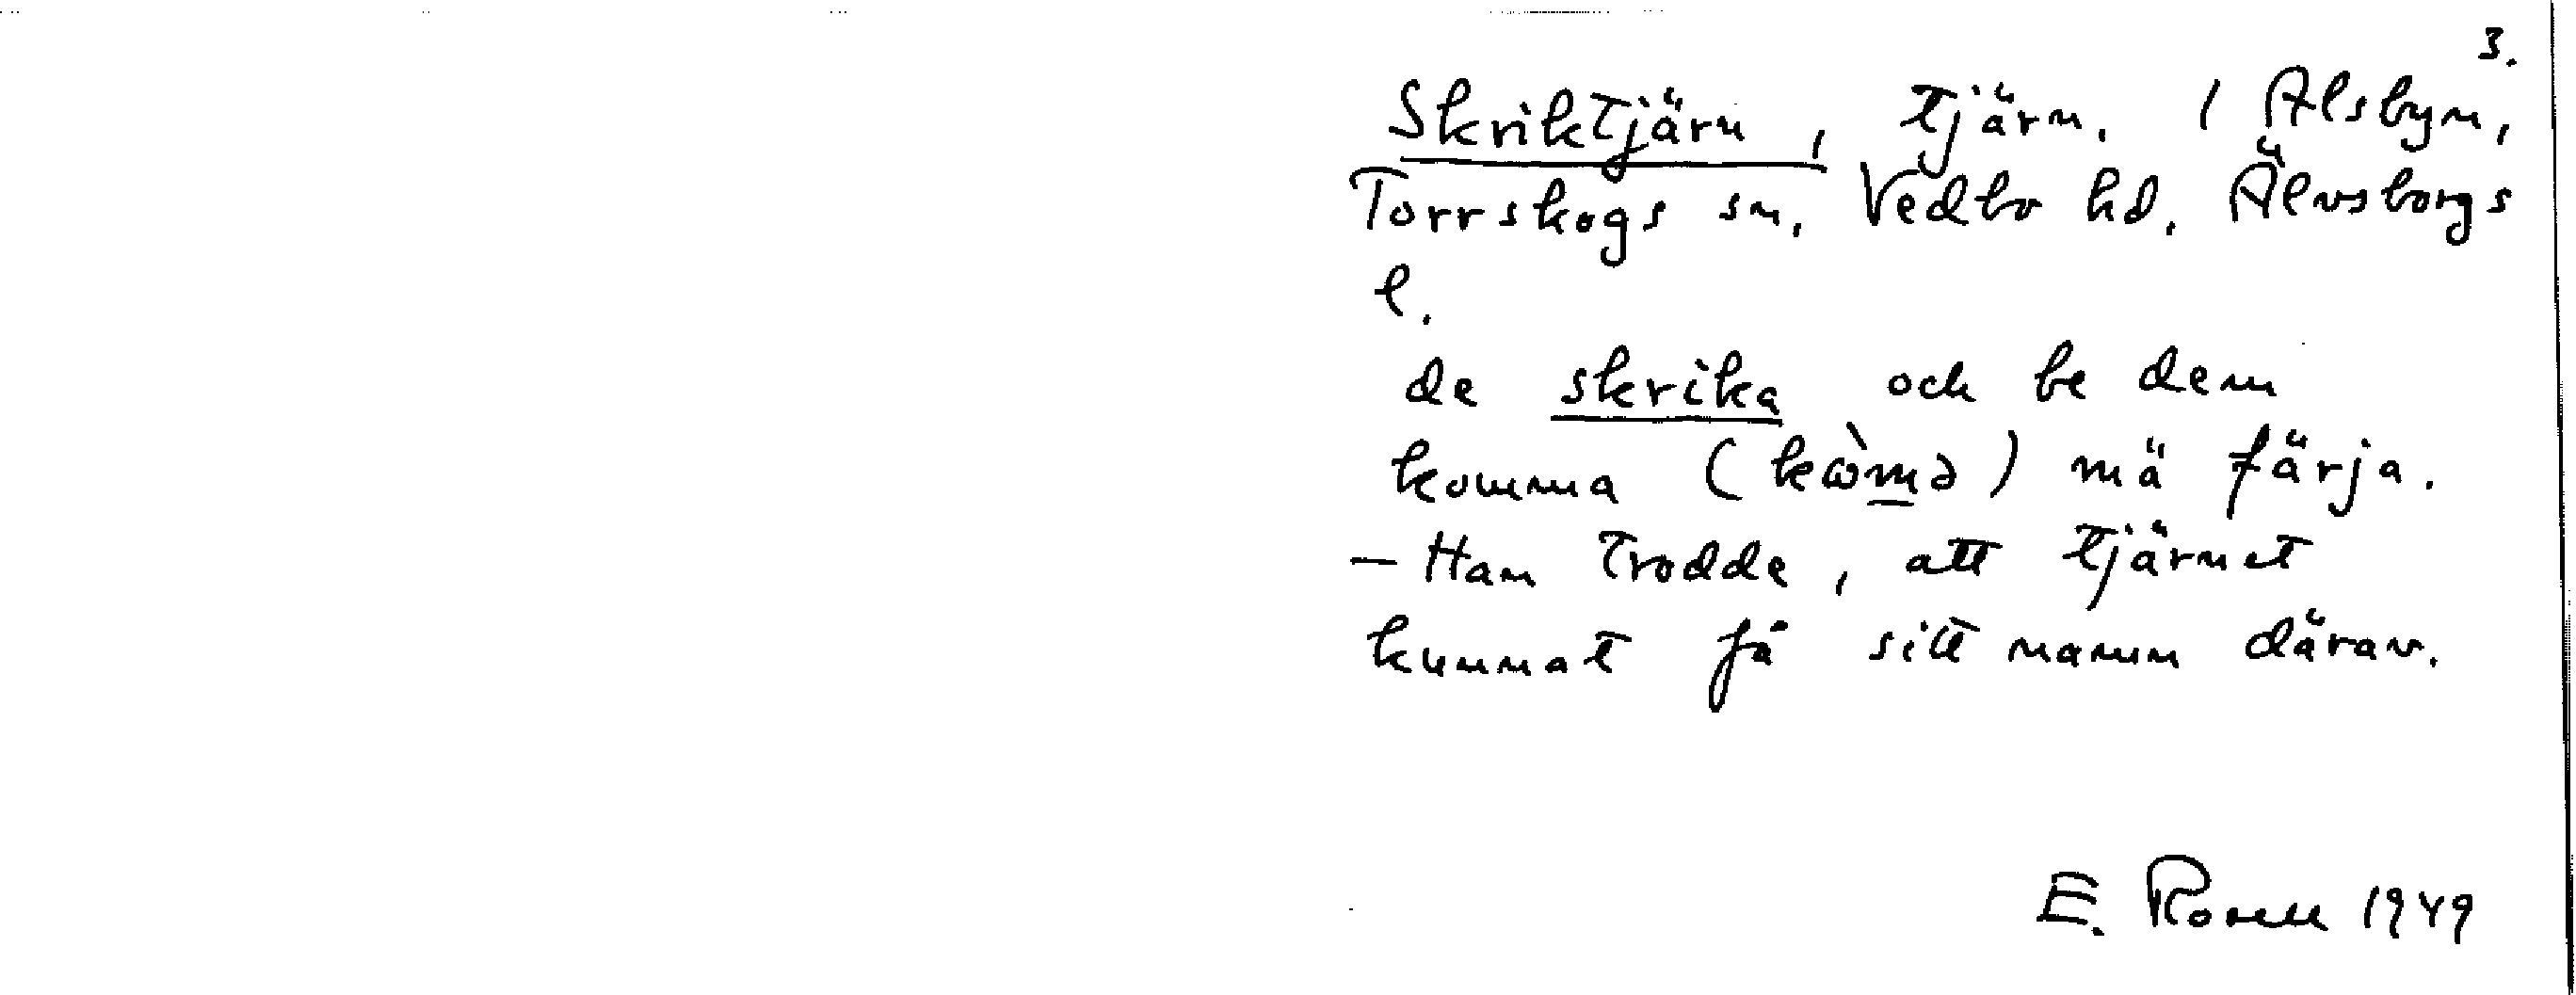 3.
Skriktjärn, tjärn. I Alsbyn,
Torrskogs sn. Vedbo hd. Älvsborgs
l.
de skrika och be dem
komma (kὼmə) mä färja.
— Han trodde, att tjärnet
kunnat få sitt namn därav.
E. Rosell 1949